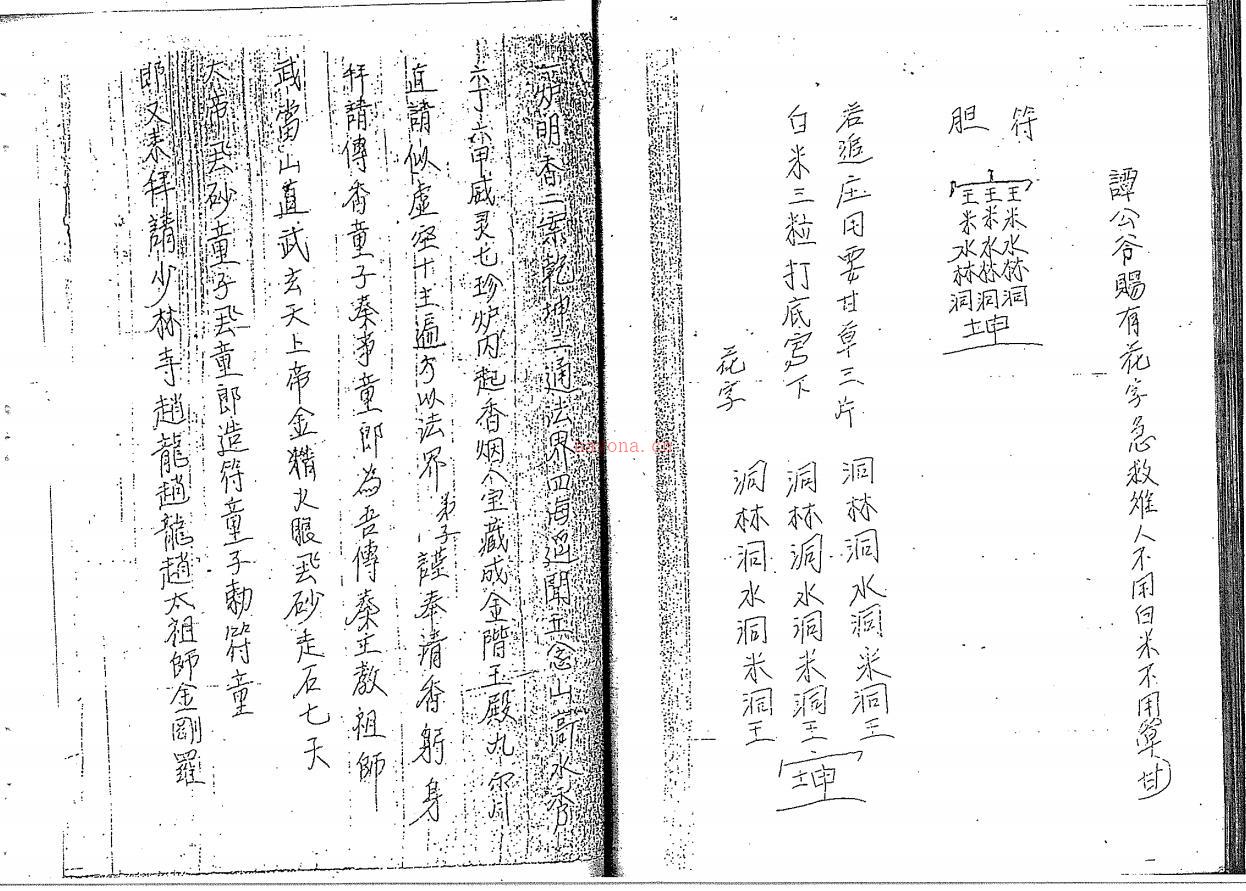 譚公爷賜有花字急救难人不用白米不用草甘
符
胆
王米水林洞
王米水林洞
王米水林洞
土坤
若追庄田要甘草三片
白米三粒打底宫下
花字
洞林洞水洞米洞王
洞林洞水洞米洞王
洞林洞水洞米洞王
土坤
一炉明香二案乾坤三通法界四海遥聞五念山高水秀
六丁六甲威灵七珍炉内起香烟八宝藏成金階王殿九
直請似虚空十主遍方以法界弟子謹奉清香躬身
拜請傳香童子奏事童郎為吾傳奏王教祖師
武當山直武玄天上帝金精火眼飛砂走石七天
大帝飛砂童子飛童郎造符童子勅符童
郎又恭拜請少林寺趙龍趙龍趙太祖師金剛羅